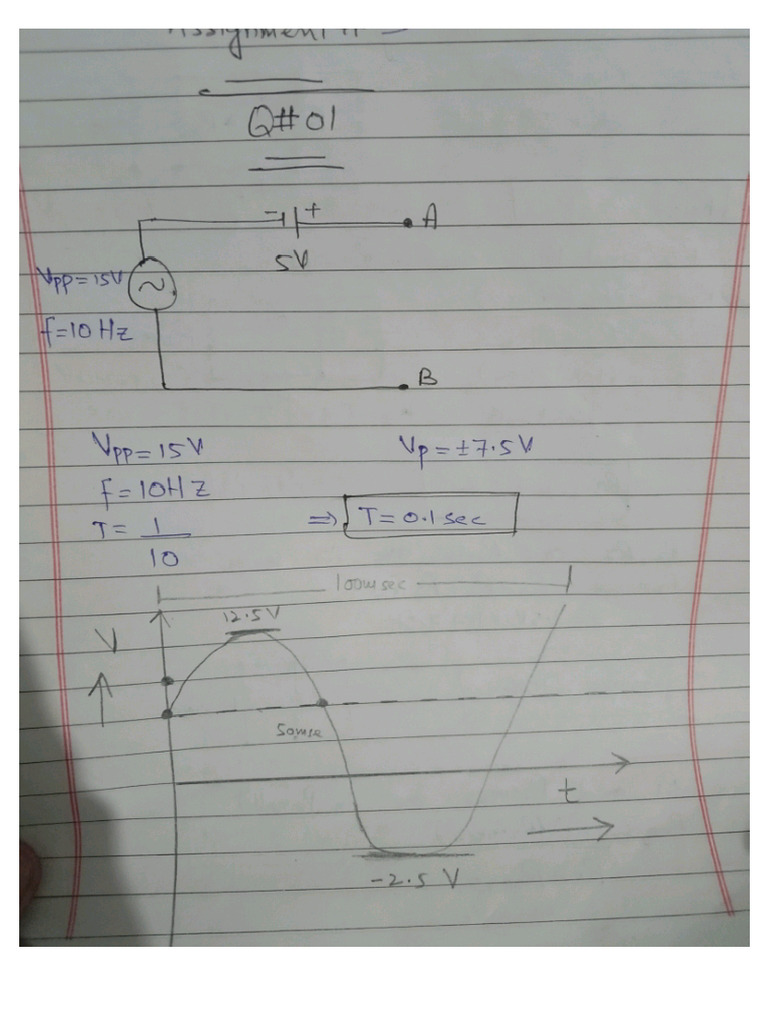 Assignment #
Q#01
- +
A
5V
Vpp=15V
f=10Hz
B
Vpp=15V
Vp=±7.5V
f=10HZ
T= 1/10
⇒ T=0.1sec
100msec
12.5V
V
t
-2.5 V